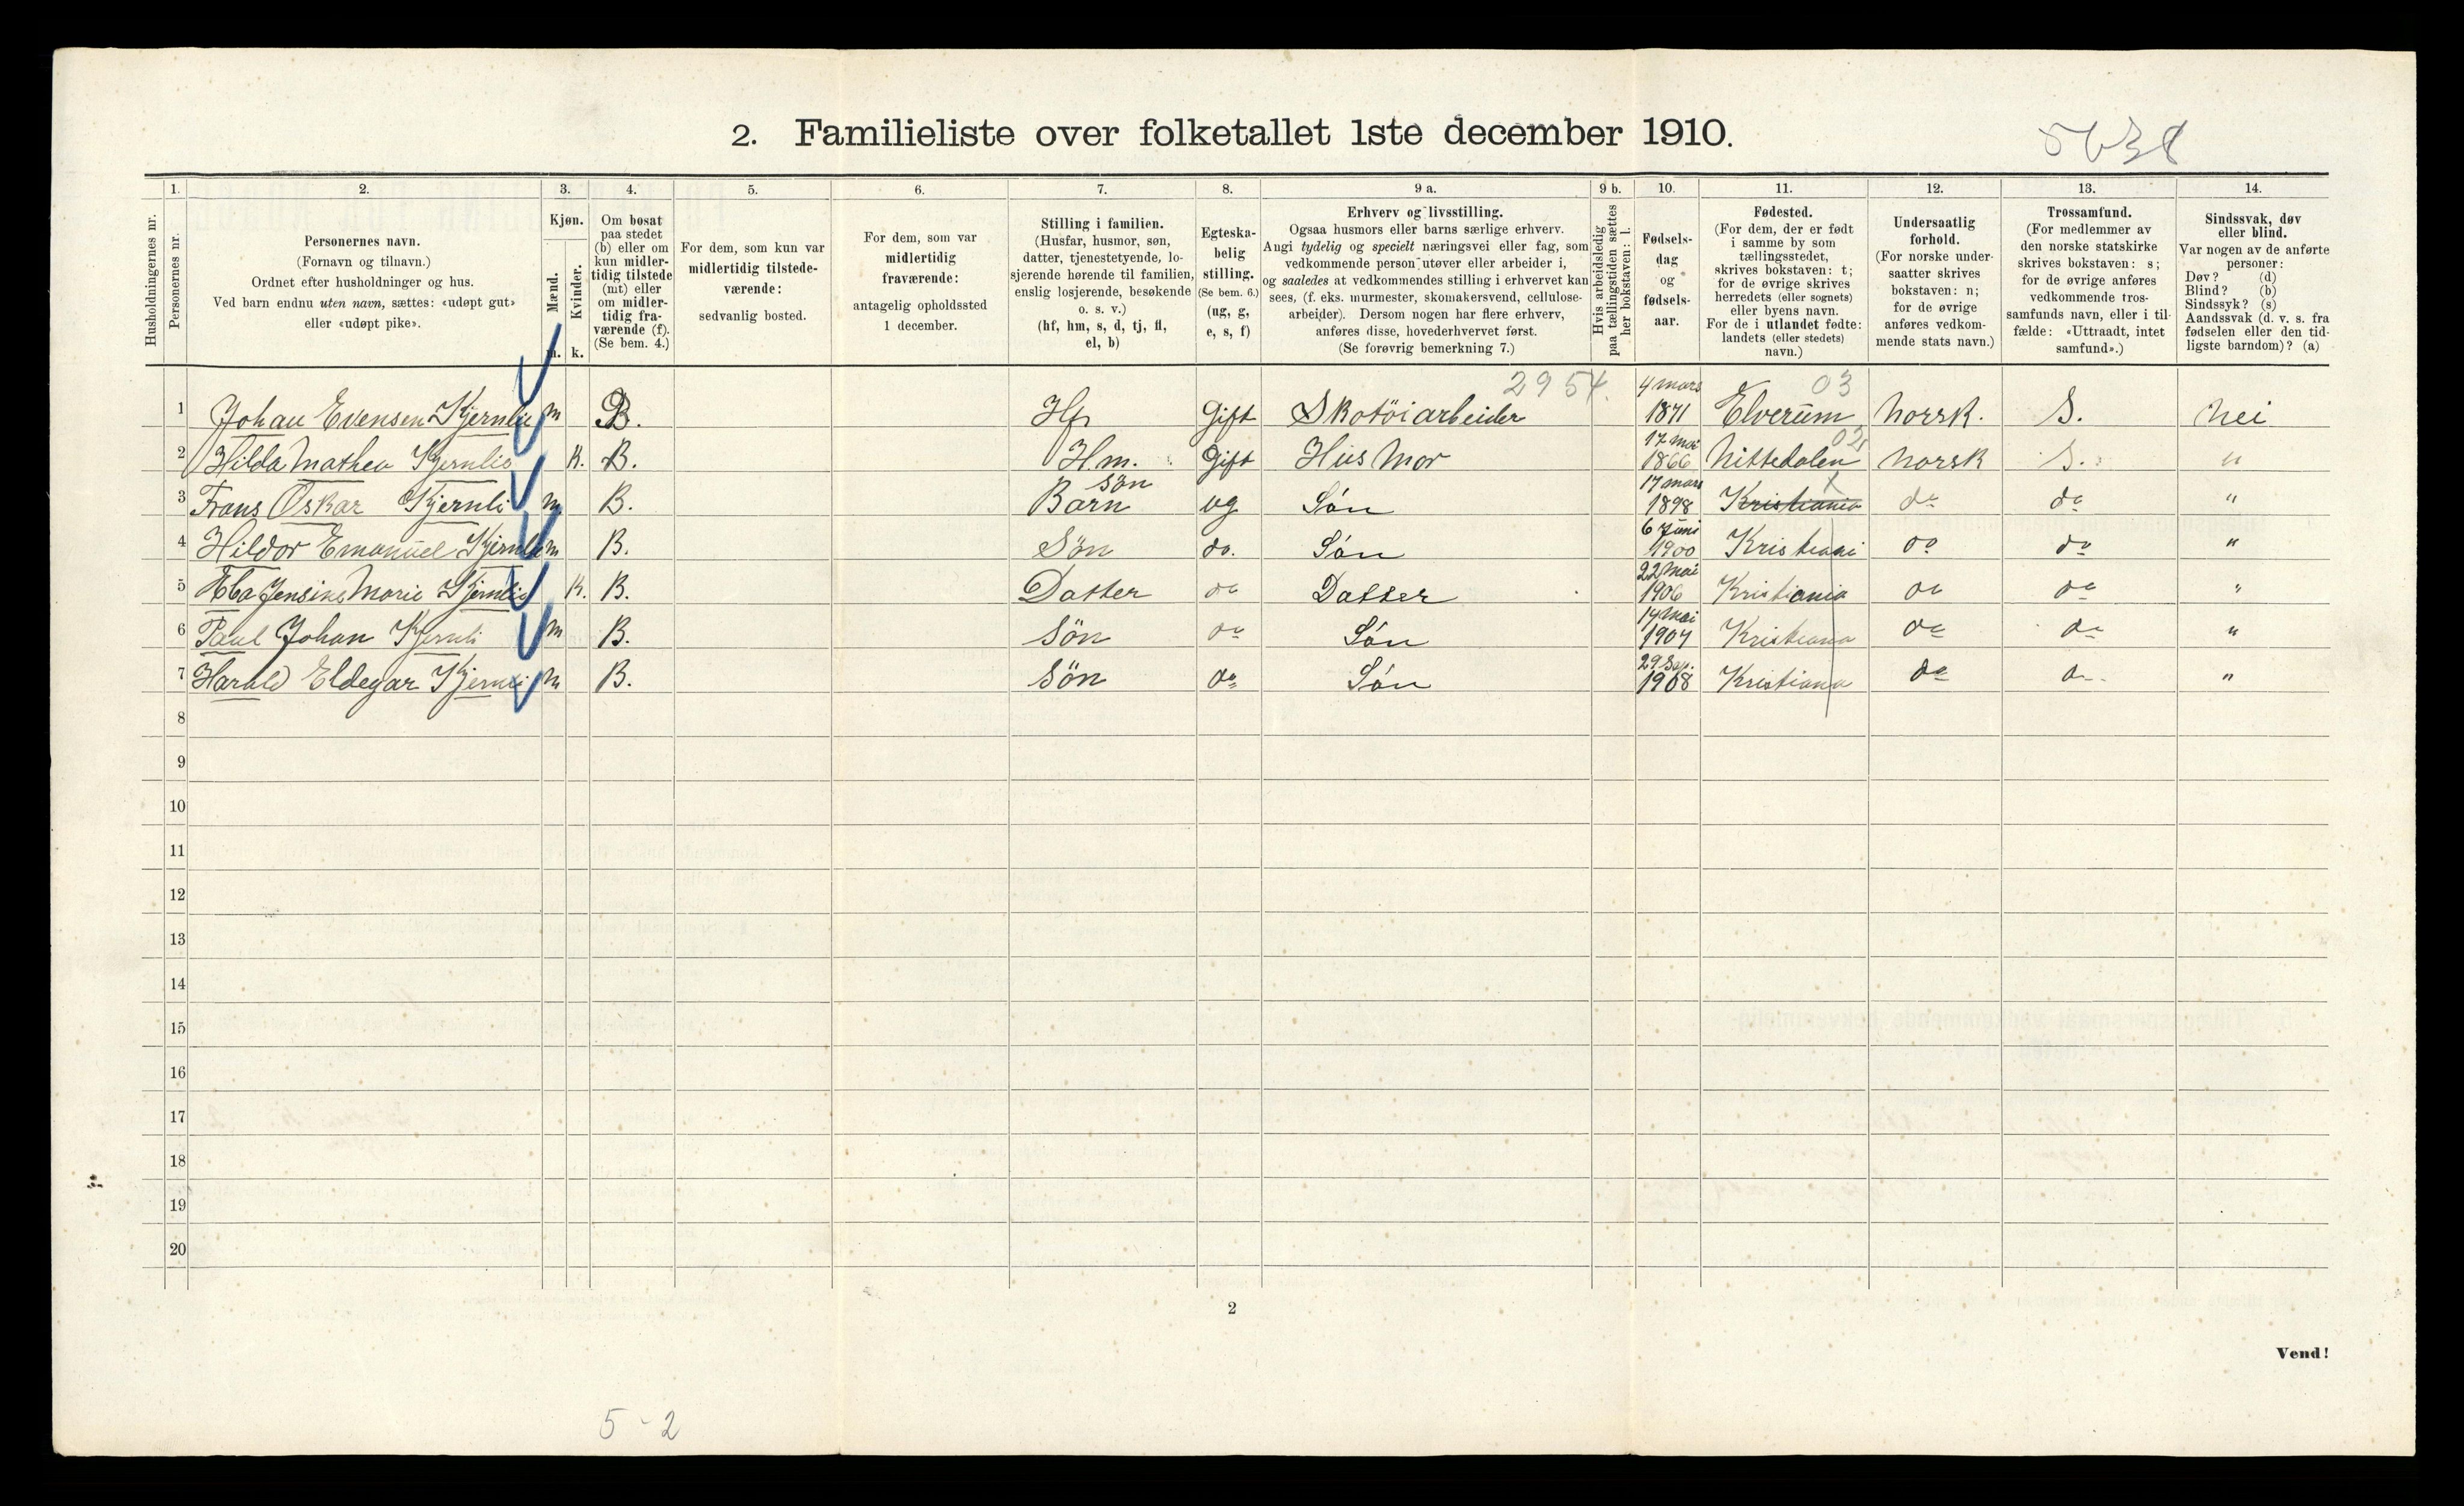 2. Familieliste over folketallet 1ste december 1910.
1. 2. 3. 4. 5. 6. 7. 8. 9 a. 9 b. 10. 11. 12. 13. 14.
Husholdningernes nr.
Personernes nr.
Personernes navn.
(Fornavn og tilnavn.)
Ordnet efter husholdninger og hus.
Ved barn endnu uten navn, sættes: «udøpt gut»
eller «udøpt pike».
Kjøn.
Mænd.
Kvinder.
m. k.
Om bosat
paa stedet
(b) eller om
kun midler-
tidig tilstede
(mt) eller
om midler-
tidig fra-
værende (f).
(Se bem. 4.)
For dem, som kun var
midlertidig tilstede-
værende:
sedvanlig bosted.
For dem, som var
midlertidig
fraværende:
antagelig opholdssted
1 december.
Stilling i familien.
(Husfar, husmor, søn,
datter, tjenestetyende, lo-
sjerende hørende til familien,
enslig losjerende, besøkende
o. s. v.)
(hf, hm, s, d, tj, fl,
el, b)
Egteska-
belig
stilling.
(Se bem. 6.)
(ug, g,
e, s, f)
Erhverv og livsstilling.
Ogsaa husmors eller barns særlige erhverv.
Angi tydelig og specielt næringsvei eller fag, som
vedkommende person utøver eller arbeider i,
og saaledes at vedkommendes stilling i erhvervet kan
sees, (f. eks. murmester, skomakersvend, cellulose-
arbeider). Dersom nogen har flere erhverv,
anføres disse, hovederhvervet først.
(Se forøvrig bemerkning 7.)
Hvis arbeidsledig
paa tællingstiden sættes
her bokstaven: l.
Fødsels-
dag
og
fødsels-
aar.
Fødested.
(For dem, der er født
i samme by som
tællingsstedet,
skrives bokstaven: t;
for de øvrige skrives
herredets (eller sognets)
eller byens navn.
For de i utlandet fødte:
landets (eller stedets)
navn.)
Undersaatlig
forhold.
(For norske under-
saatter skrives
bokstaven: n;
for de øvrige
anføres vedkom-
mende stats navn.)
Trossamfund.
(For medlemmer av
den norske statskirke
skrives bokstaven: s;
for de øvrige anføres
vedkommende tros-
samfunds navn, eller i til-
fælde: «Uttraadt, intet
samfund».)
Sindssvak, døv
eller blind.
Var nogen av de anførte
personer:
Døv? (d)
Blind? (b)
Sindssyk? (s)
Aandssvak (d. v. s. fra
fødselen eller den tid-
ligste barndom)? (a)
2954. 4 mars 03
1 Johan Evensen Kjernlie m B. Hf Gift Skotöiarbeider 1871 Elverum Norsk. S. Nei
17 mai 02
2 Hilda Mathea Kjernlie K. B. Hm. Gift Hüs Mor 1866 Nittedalen Norsk S. "
Sön 17 mars
3 Frans Oskar Kjernli m B. Barn ug Són 1898 Kristiania do do "
6 Juni
4 Hildor Emanuel Kjernli m B. Sön do. Són 1900 Kristiani do do "
22 Mai
5 Jensine Marie Kjernlie K. B. Datter do Datter 1906 Kristiania do do "
14 Mai
6 Paul Johan Kjernli m B. Sön do Són 1904 Kristiana do do "
29 Sep.
7 Harald Eldegar Kjernli m B. Sön do Són 1908 Kristiana do do "
8
9
10
11
12
13
14
15
16
17
18
19
20
2
Vend!
5 - 2